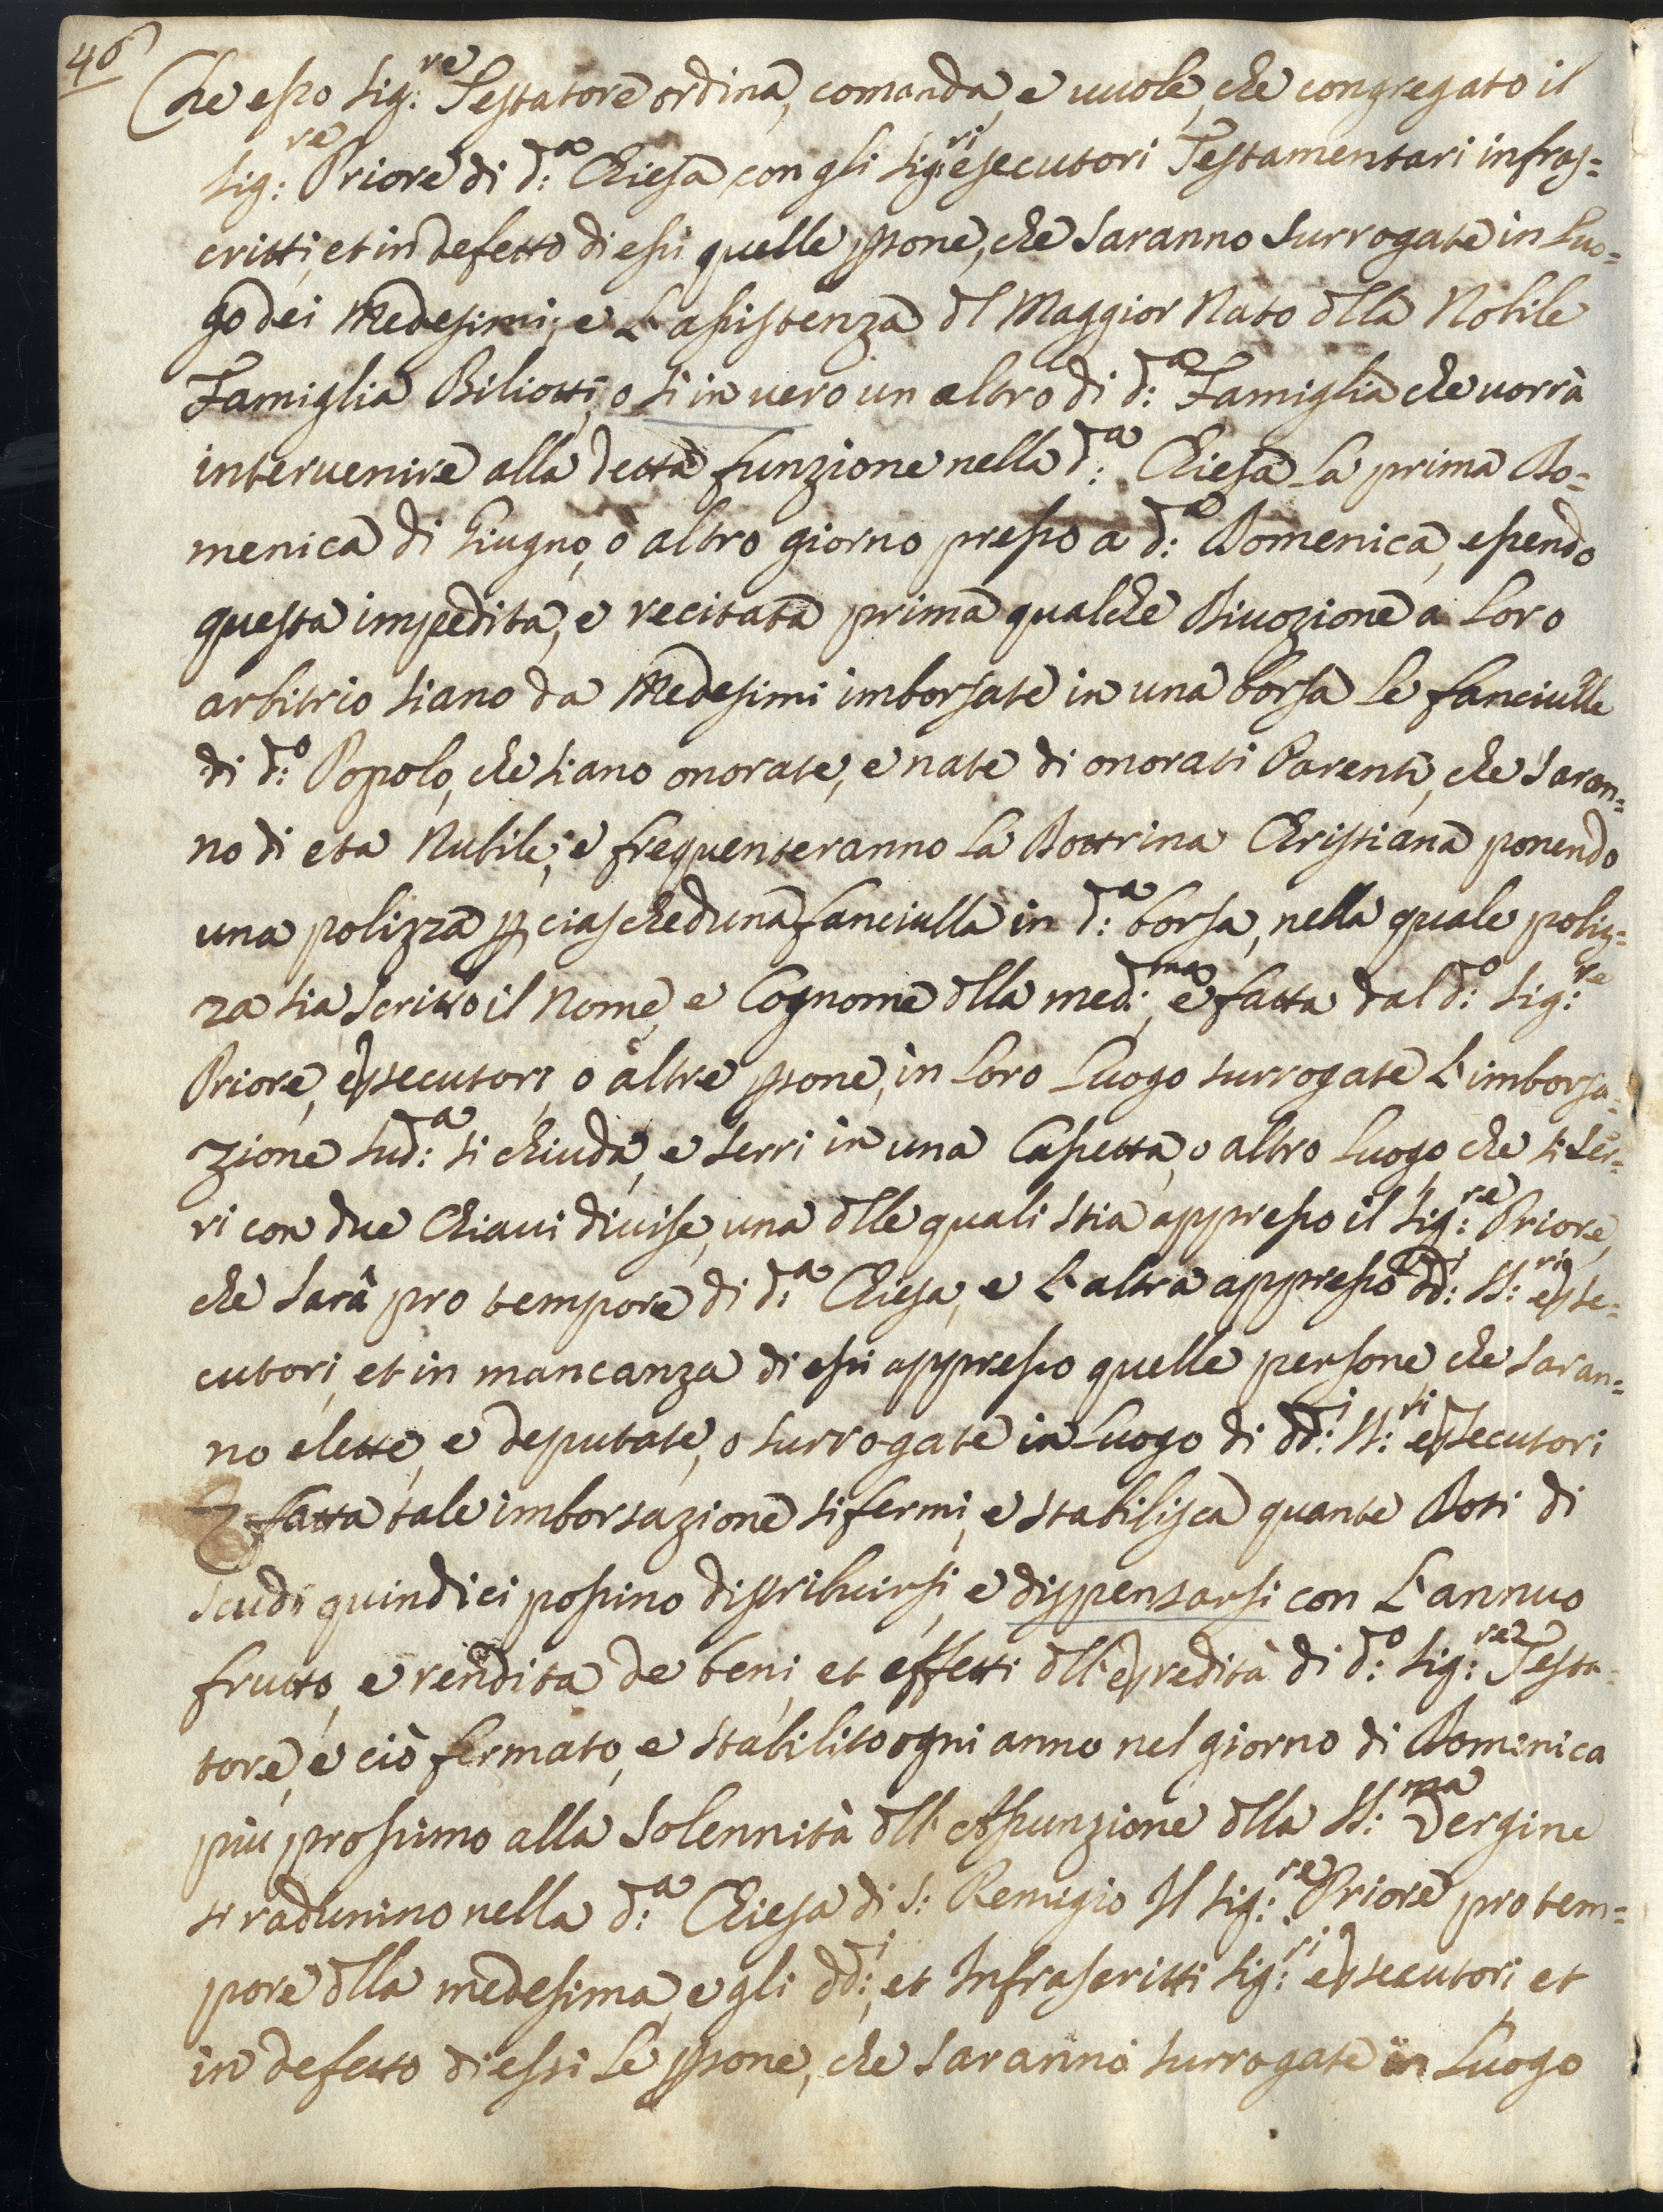 46
Che esso Sig:re Testatore ordina, comanda, e uuole, che congregato il
Sig:re Priore di d:a Chiesa con gli Sig:ri esecutori Testamentari infras=
critti, et in defetto di essi quelle psone, che saranno surrogate in Luo=
go dei Medesimi, e L'assistenza dl Maggior Nato dlla Nobile
Famiglia Biliotti, o si in vero un altro di d:a Famiglia che uorrà
interuenire alla detta funzione nella d:a Chiesa La prima Do=
menica di Giugno, ò altro giorno presso a d:a Domenica, essendo
questa impedita, e recitata prima qualche Diuozione a Loro
arbitrio siano da Medesimi imborsate in una borsa Le fanciulle
di d:o Popolo, che siano onorate, e nate di onorati Parenti, che Saran=
no di eta Nubile, e frequenteranno La Dottrina Christiana ponendo
una polizza p ciascheduna fanciulla in d:a borsa, nella quale poliz=
za sia Scritto il Nome, e Cognome dlla med:ma e fatta dal d:o Sig:re
Priore, essecutori, o altre psone, in Loro Luogo surrogate L'imborsa=
zione sud:a si chiuda, e serri in una Cassetta, o altro Luogo, che si ser=
ri con due Chiaui diuise, una dlle quali stia appresso il Sig:re Priore,
che Sarà pro tempore di d:a Chiesa, e L'altra appresso dd:i SS:ri esse=
cutori, et in mancanza di essi appresso quelle persone che Saran=
no elette, e deputate, o surrogate in Luogo di dd:i SS:ri essecutori
E fatta tale imborsazione si fermi, e stabilisca quante Doti di
scudi quindici possino distribuirsi, e dispensarsi con L'annuo
frutto, e rendita de beni, et effetti dll'eredità di d:o Sig:re Testa=
tore, e ciò fermato, e stabilito ogni anno nel giorno di Domenica
più prossimo alla Solennità dll'Assunzione dlla SS:ma Vergine
si radunino nella d:a Chiesa di S: Remigio Il Sig:re Priore pro tem=
pore dlla medesima, e gli dd:i, et Infrascritti Sig:ri essecutori, et
in defetto di essi Le psone, che Saranno surrogate in Luogo